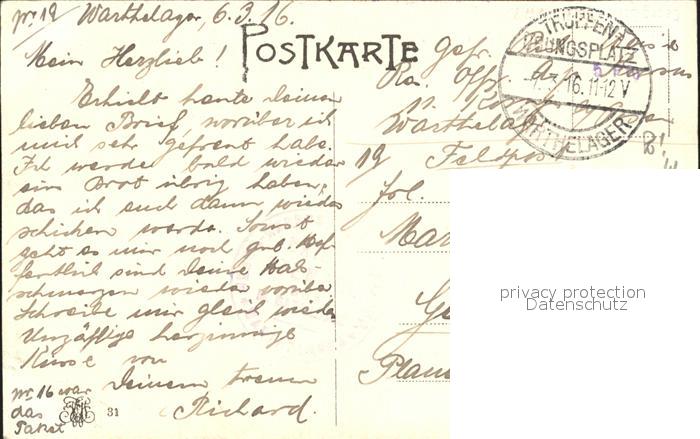 Nr. 19 Warthelager, 6.3.16.
Mein Herzlieb!
POSTKARTE
Erhielt heute Deinen
lieben Brief, worüber ich
mich sehr gefreut habe.
Ich werde bald wieder
ein Brot übrig haben,
das ich euch dann wieder
schicken werde. Sonst
geht es mir noch gut. Hof-
fentlich sind Deine Hals-
schmerzen wieder vorüber
Schreibe mir gleich wieder
Unzählige herzinnige
Küsse von
Deinem treuen
Richard.
Nr. 16 war
das
Paket
31
TRUPPEN-
ÜBUNGSPLATZ
7.3.16.11-12V
WARTHELAGER
Gefr.
Warthelager
19 Feldpost
Frl.
Mar
Ge
Plau
privacy protection
Datenschutz